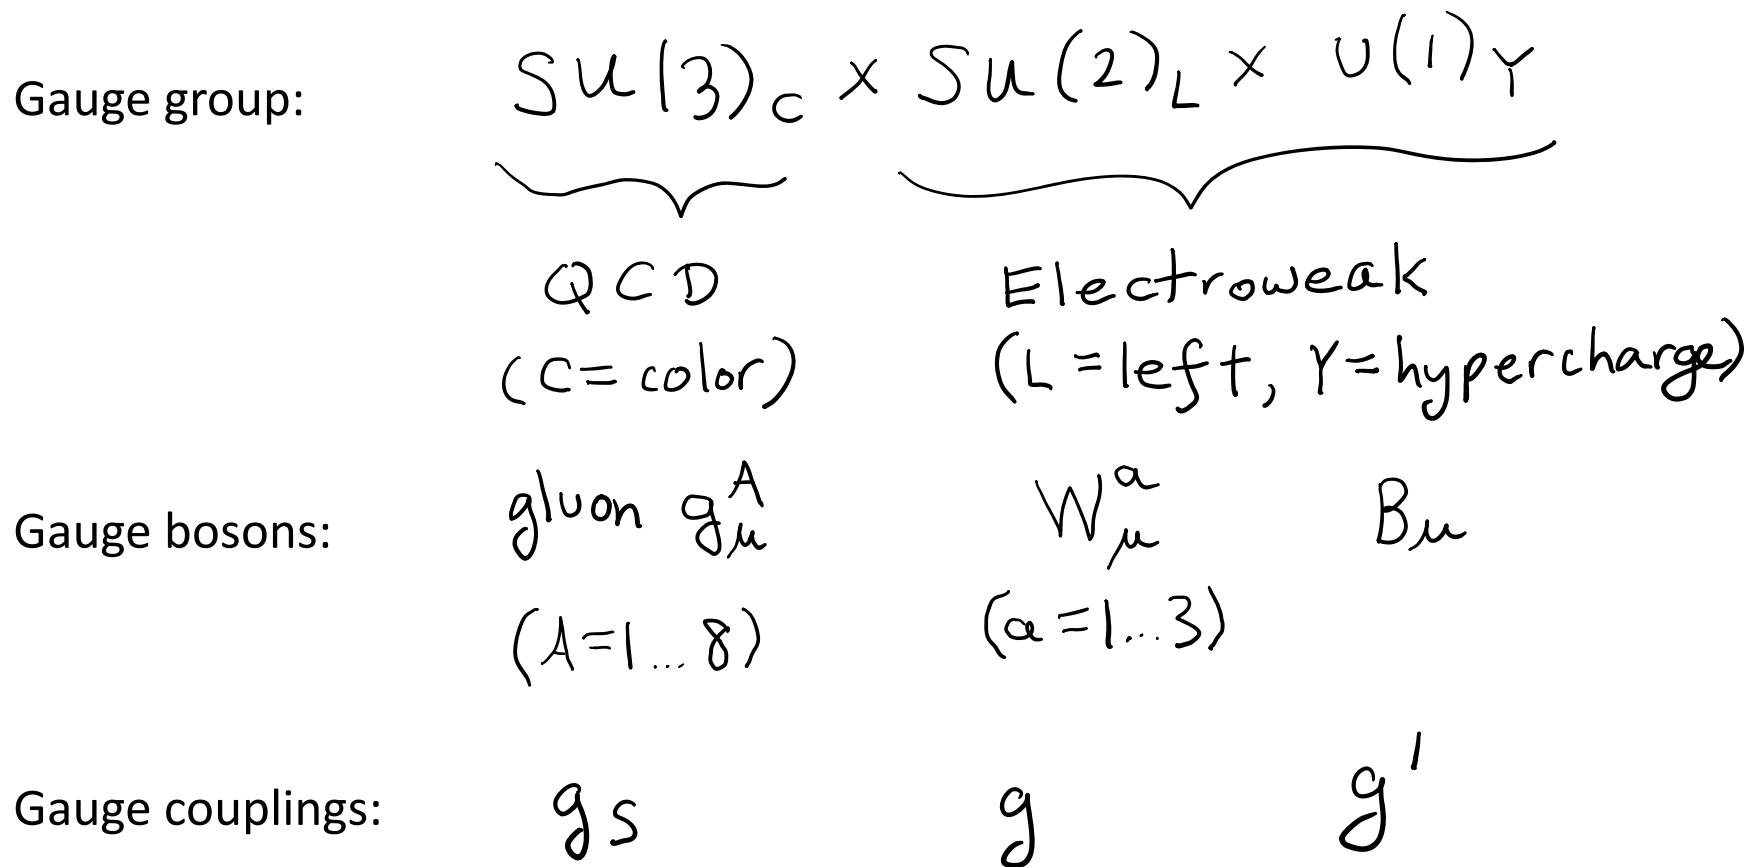 Gauge group: SU(3)_C × SU(2)_L × U(1)_Y
QCD Electroweak
(C = color) (L = left, Y = hypercharge)
Gauge bosons: gluon g_μ^A W_μ^a B_μ
(A=1...8) (a=1...3)
Gauge couplings: g_s g g'